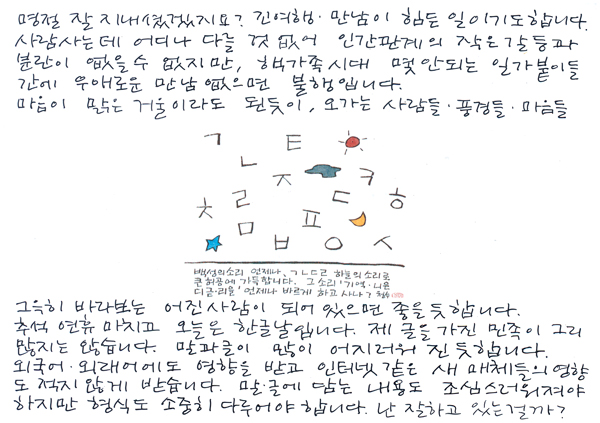 명절 잘 지내셨겠지요? 긴여행·만남이 힘든 일이기도합니다.
사람사는데 어디나 다를 것 없어 인간관계의 작은갈등과
분란이 없을수 없지만, 핵가족시대 몇안되는 일가붙이들
간에 우애로운 만남 없으면 불행입니다.
마음이 맑은 거울이라도 된듯이, 오가는 사람들·풍경들·마음들
ㄱ ㅌ
ㄴ ㅈ ㅋ
ㅊ ㄹ ㄷ ㅎ
ㅁ ㅍ
ㅂ ㅇ ㅅ
백성의소리 언제나, ㄱㄴㄷㄹ 하늘의소리로
큰허공에가득합니다. 그 소리 '기역·니은
디귿·리을' 언제나 바르게 하고 사나?
그윽히 바라보는 어진사람이 되어 있으면 좋을듯합니다.
추석 연휴 마치고 오늘은 한글날입니다. 제 글을 가진 민족이 그리
많지는 않습니다. 말과글이 많이 어지러워 진 듯합니다.
외국어·외래어에도 영향을 받고 인터넷 같은 새 매체들의 영향
도 적지않게 받습니다. 말·글에 담는 내용도 조심스러워져야
하지만 형식도 소중히 다루어야 합니다. 난 잘하고 있는걸까?